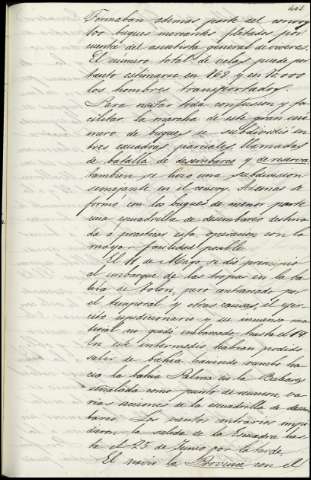 Formaban además parte del convoy
los buques mercantes fletados por
cuenta del asentista general de víveres.
El número total de velas puede por
tanto estimarse en
los hombres transportados.
Para evitar toda confusion y fa
cilitar la marcha de este gran nú
mero de buques se subdividió en
tres escuadras parciales, llamadas
de batalla, de desembarco y de reserva
tambien se hizo una subdivision
semejante en el convoy. Además se
formó con los buques de menor porte
una escuadrilla de desembarco destina
da á practicar esta operacion con la
mayor facilidad posible.
El 11 de Mayo se dió principio
al embarque de las tropas en la ba
hía de Tolon, pero entorpecido por
el temporal y otras causas el ejér
cito espedicionario y su inmenso ma
terial no quedó embarcado hasta el
en este intermedio habian podido
salir de bahía, haciendo rumbo há
cia la bahía Palma isla Baleares
señalada como punto de reunion, va
rias secciones de la escuadrilla de desem
barco. Los vientos contrarios impi
dieron la salida de la Escuadra has
ta el 25 de Junio por la tarde.
El navío la Provence con el